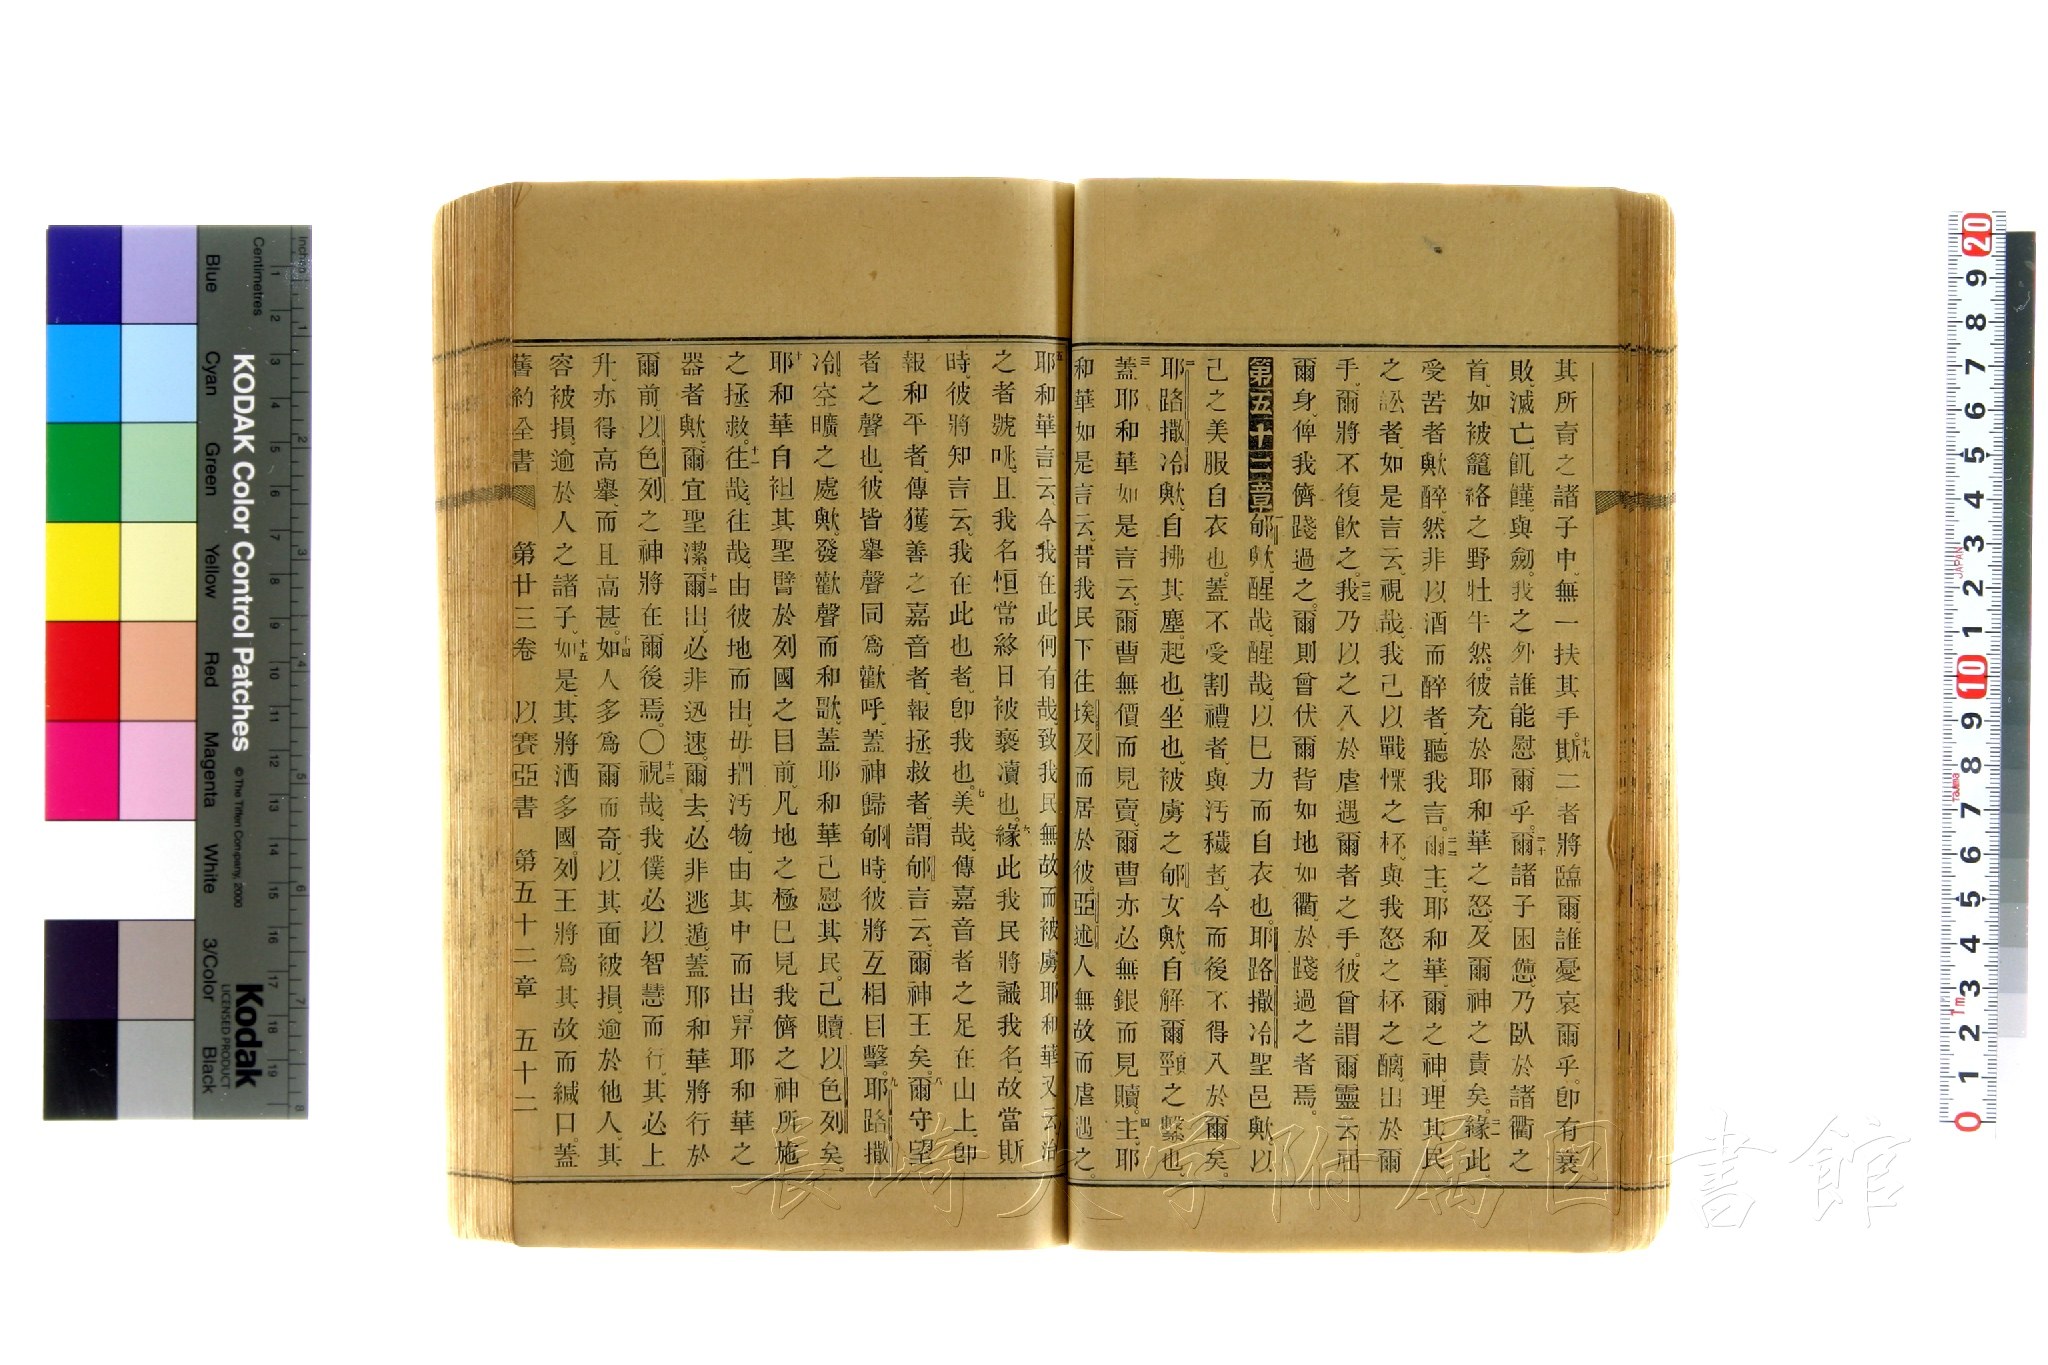 其所育之諸子中、無一扶其手。十九斯二者將臨爾、誰憂哀爾乎。卽有衰
敗、滅亡、飢饉、與劒。我之外誰能慰爾乎。二十爾諸子困憊、乃臥於諸衢之
首、如被籠絡之野牡牛然。彼充於耶和華之怒、及爾神之責矣。二一緣此
受苦者歟、醉、然非以酒而醉者、聽我言。二二爾主、耶和華、爾之神、理其民
之訟者、如是言云、視哉、我已以戰慄之杯、與我怒之杯之醨、出於爾
手、爾將不復飲之。二三我乃以之入於虐遇爾者之手。彼曾謂爾靈云、屈
爾身、俾我儕踐過之。爾則曾伏爾背如地、如衢、於踐過之者焉。
第五十二章一郇歟、醒哉、醒哉、以己力而自衣也。耶路撒冷聖邑歟、以
己之美服自衣也。蓋不受割禮者、與汚穢者、今而後不得入於爾矣。
二耶路撒冷歟、自拂其塵。起也、坐也、被虜之郇女歟、自解爾頸之繫也。
三蓋耶和華如是言云、爾曹無價而見賣、爾曹亦必無銀而見贖。四主、耶
和華如是言云、昔我民下往埃及而居於彼。亞述人無故而虐遇之。
五耶和華言云、今我在此何有哉、致我民無故而被虜、耶和華又云、治
之者號咷、且我名恒常終日被褻瀆也。六緣此我民將識我名、故當斯
時、彼將知言云、我在此也者、卽我也。七美哉、傳嘉音者之足在山上、卽
報和平者、傳獲善之嘉音者、報拯救者、謂郇言云、爾神王矣。八爾守望
者之聲也、彼皆舉聲同爲歡呼、蓋神歸郇時、彼將互相目擊。九耶路撒
冷空曠之處歟、發歡聲而和歌、蓋耶和華已慰其民。已贖以色列矣。
十耶和華自袒其聖臂於列國之目前、凡地之極已見我儕之神所施
之拯救。十一往哉、往哉、由彼地而出、毋捫汚物、由其中而出。舁耶和華之
器者歟、爾宜聖潔。十二爾出、必非迅速。爾去、必非逃遁。蓋耶和華將行於
爾前、以色列之神將在爾後焉。〇十三視哉、我僕必以智慧而行、其必上
升、亦得高舉、而且高甚。十四如人多爲爾而奇、以其面被損、逾於他人、其
容被損、逾於人之諸子。十五如是、其將洒多國。列王將爲其故而緘口。蓋
舊約全書 第廿三卷 以賽亞書 第五十二章 五十二
長崎大学附属図書館
KODAK Color Control Patches
© The Tiffen Company, 2000
Kodak
LICENSED PRODUCT
Inches
Centimetres
Blue
Cyan
Green
Yellow
Red
Magenta
White
3/Color
Black
1 2 3 4 5 6 7 8 9 10 11 12 13 14 15 16 17 18 19
1 2 3 4 5 6 7 8
20 9 8 7 6 5 4 3 2 1 10 9 8 7 6 5 4 3 2 1 0
JAPAN